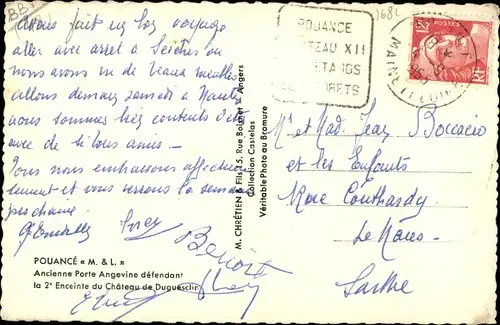 Avons fait un bon voyage
aller avec arret a Seiches ou
nous avons vu de beaux meubles
allons demain samedi a Nantes
nous sommes bien contents
avec de si bons amis -
Tous nous embrassons affectueu
sement et vous verrons la semaine
prochaine
Benoit
POUANCÉ « M. & L. »
Ancienne Porte Angevine défendant
la 2e Enceinte du Château de Duguesclin
M. CHRÉTIEN & Fils, 15, Rue Boisnet, Angers
Collection Castelas
Véritable Photo au Bromure
1682
POUANCE
CHATEAU XII
ETANGS
FORETS
POSTES
MAINE ET LOIRE
Mr et Mad. Jean Boccacio
et les Enfants
Rue Couthardy
Le Mans
Sarthe